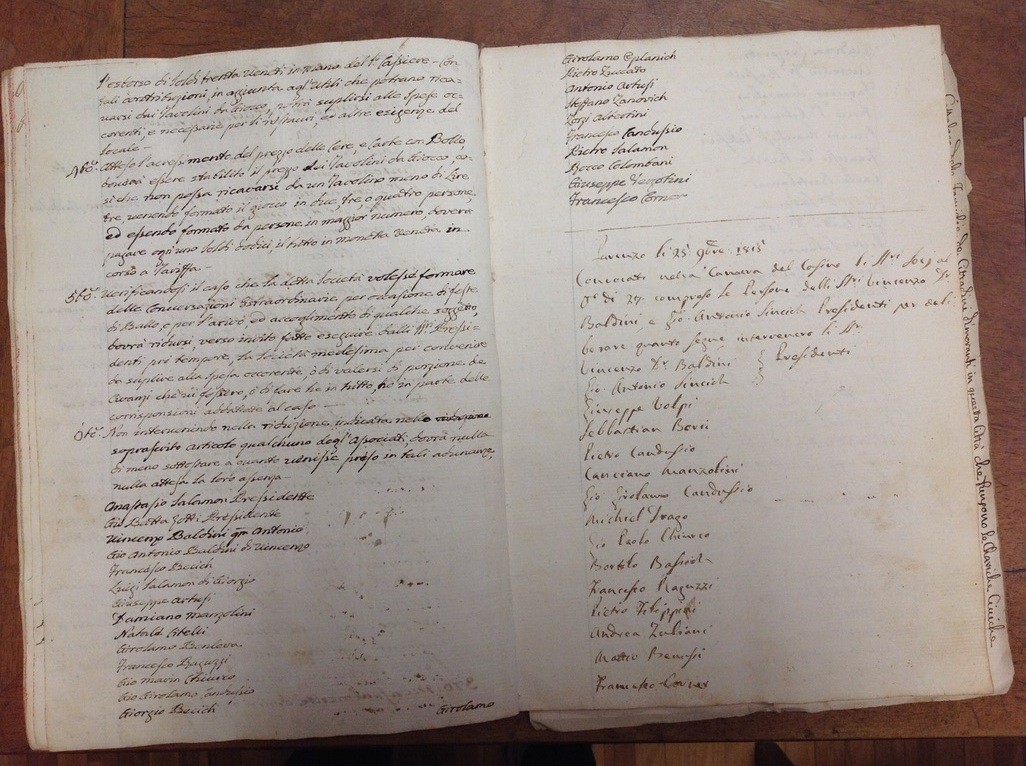 l'esborso di Soldi trenta Veneti in mano del Cassiere. Con
tali contribuzioni, in aggiunta agl'Utili che potrano rica=
varsi dai Tavolini da Gioco, potrà suplirsi alle spese oc=
corenti, e necesarie per li ristauri, ed altre esigenze del
locale.
4to. Atteso l'acrescimento del prezzo delle Cere, e Carte con Bollo,
dovrà essere stabilito il prezzo dei Tavolini da Gioco, co=
si che non possa ricavarsi da un Tavolino meno di Lire
tre, venendo formato il gioco in due, tre, o quattro persone,
ed essendo formato da persone in maggior numero doverà
pagare ogni uno Soldi dodici, il tutto in monetta Veneta in
corso a Tariffa.
5to. Verificandosi il caso che la detta Società volesse formare
delle Conversazioni Extraordinarie, per ocasione di feste
di Ballo, o per l'arivo, ed accoglimento di qualche soggetto,
dovrà ridursi verso invito fatto eseguire dalli Presi=
denti prò tempore, la Società medesima per convenire
da suplire alla spesa occorente, ò di valersi di porzione de
Civanzi che vi fossero, ò di fare ho in tutto, ho in parte delle
corrisponsioni addattate al caso
6to. Non intervenindo nella riduzione, indicata nello
soprascrito articolo qualchuno degl'Asociati, dovrà nulla
di meno sottostare a quanto venisse preso in tali adunanze,
nulla attesa la loro assenza
Anastasio Salamon Pressidente
Gio Batta Zotti Pressidente
Vincenzo Baldini qm Antonio
Gio Antonio Baldini di Vincenzo
Francesco Becich
Luigi Salamon di Giorgio
Giuseppe Artusi
Damiano Manzolini
Natale Citelli
Girolamo Benleva
Francesco Raguzzi
Gio Maria Chiurco
Gio Girolamo Candussio
Giorgio Becich
Girolamo
Girolamo Eplanich
Pietro Zuccato
Antonio Artusi
Steffano Zanovich
Zorzi Albertini
Francesco Candussio
Pietro Salamon
Rocco Colombani
Giuseppe Vergotini
Francesco Corner
Parenzo li 25 9bre. 1815
Convocati nella Camera del Casino li Sigri Socj al
n° di 27. compreso le Persone delli Sigri Vincenzo Dr
Baldini e Gio: Antonio Sincich Presidenti per deli
berare quanto segue intervenero li Sigri
Vincenzo Dr. Baldini } Presidenti
Gio: Antonio Sincich
Giuseppe Volpi
Sebbastian Borri
Pietro Candussio
Canciano Manzolini
Gio Girolamo Candussio
Michiel Drago
Gio Paolo Chiurco
Bortolo Bassich
Francesco Raguzzi
Pietro Filippini
Andrea Zuliani
Matteo Benussi
Francesco Corner
Famiglie de Cittadini dimoranti in questa Città che fungono le Cariche Civiche